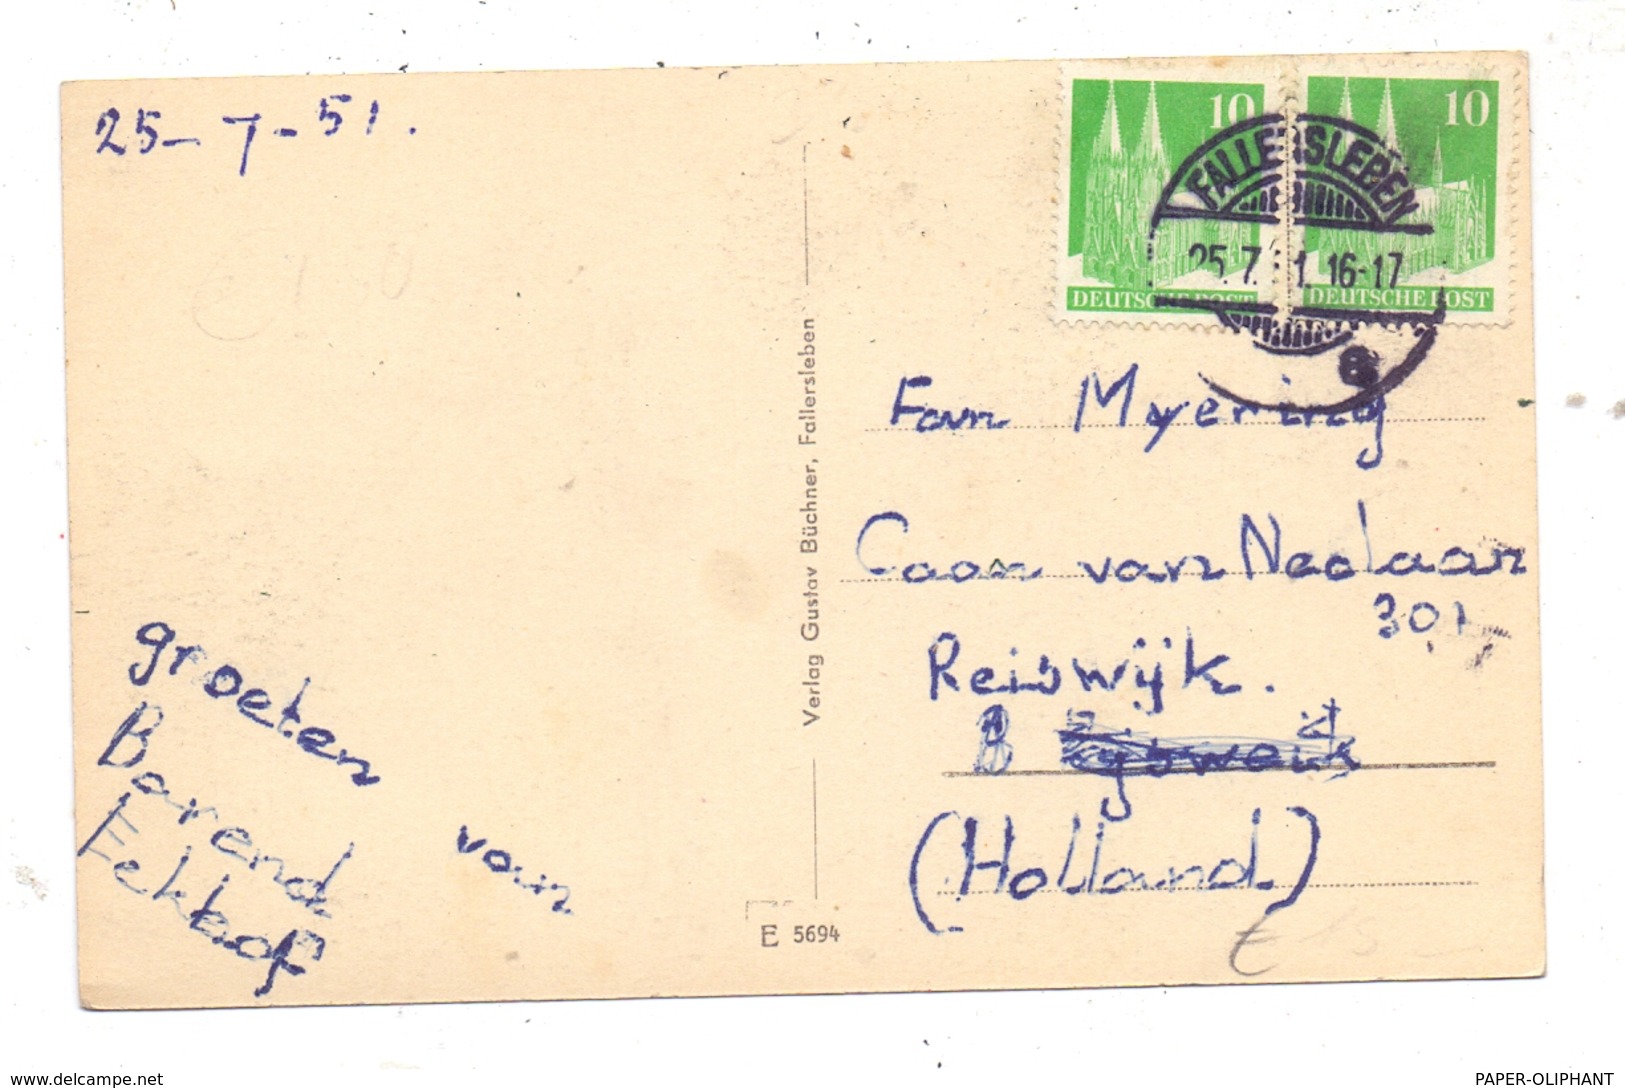 25-7-51.
10
10
DEUTSCHE POST
DEUTSCHE POST
FALLERSLEBEN
25.7. 1. 16-17
a
Fam Myering
Caan van Neclaan
301
Reiswijk.
B
(Holland)
groeten
van
Barend
Eekhof
Verlag Gustav Büchner, Fallersleben
E 5694
www.delcampe.net
PAPER-OLIPHANT